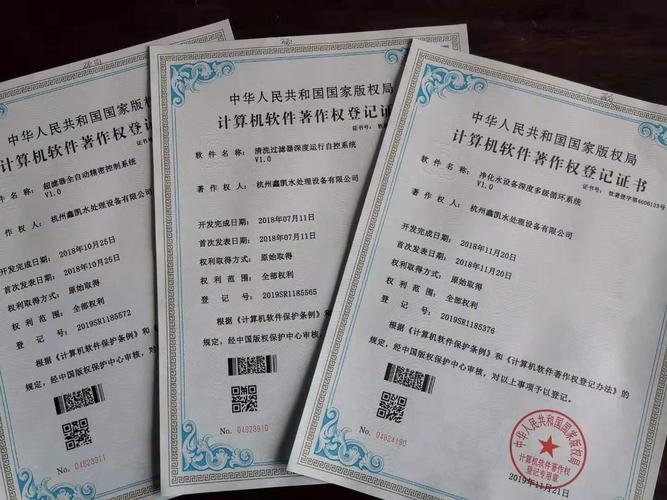 中华人民共和国国家版权局
计算机软件著作权登记
软件名称： 超滤器全自动精密控制系统
V1.0
著作权人： 杭州鑫凯水处理设备有限公司
开发完成日期： 2018年10月25日
首次发表日期： 2018年10月25日
权利取得方式： 原始取得
权利范围： 全部权利
登记号： 2019SR1185572
根据《计算机软件保护条例》和
规定，经中国版权保护中心审核，对
No. 04523911
中华人民共和国国家版权局
计算机软件著作权登记证
证书号：
软件名称： 清洗过滤器深度运行自控系统
V1.0
著作权人： 杭州鑫凯水处理设备有限公司
开发完成日期： 2018年07月11日
首次发表日期： 2018年07月11日
权利取得方式： 原始取得
权利范围： 全部权利
登记号： 2019SR1185565
根据《计算机软件保护条例》和
规定，经中国版权保护中心审核，
No. 04523910
中华人民共和国国家版权局
计算机软件著作权登记证书
证书号： 软著登字第4606133号
软件名称： 净化水设备深度多级循环系统
V1.0
著作权人： 杭州鑫凯水处理设备有限公司
开发完成日期： 2018年11月20日
首次发表日期： 2018年11月20日
权利取得方式： 原始取得
权利范围： 全部权利
登记号： 2019SR1185376
根据《计算机软件保护条例》和《计算机软件著作权登记办法》的
规定，经中国版权保护中心审核，对以上事项予以登记。
No. 04924190
中华人民共和国国家版权局
计算机软件著作权
登记专用章
2019年11月21日